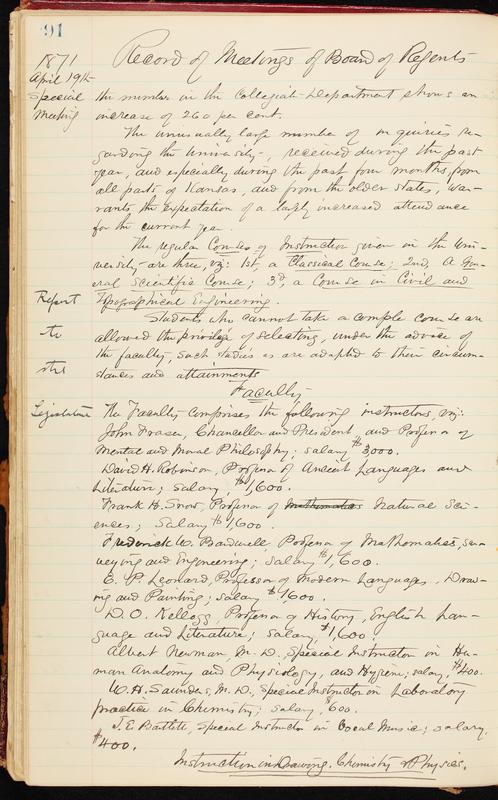 91
Record of Meetings of Board of Regents
1871
April 19th
Special
Meeting
the number in the Collegiate Department shows an
increase of 260 per cent.
The unusually large number of inquiries re-
garding the University, received during the past
year, and especially during the past four months, from
all parts of Kansas, and from the older States, war-
rants the expectation of a largely increased attendance
for the current year.
The regular Courses of Instruction given in the Uni-
versity are three, viz: 1st, a Classical Course; 2nd, A Gen-
eral Scientific Course; 3d, a Course in Civil and
Topographical Engineering.
Report
to
the
Legislature
Students who cannot take a complete course are
allowed the privilege of selecting, under the advice of
the faculty, such studies as are adapted to their circum-
stances and attainments
Faculty
The Faculty comprises the following instructors, viz:
John Fraser, Chancellor and President, and Professor of
Mental and Moral Philosophy; salary $3,000.
David H. Robinson, Professor of Ancient Languages and
Literature; Salary, $1,600.
Frank H. Snow, Professor of Mathematics Natural Sci-
ences; Salary $1,600.
Frederick W. Bardwell Professor of Mathematics, sur-
veying and Engineering; salary $1,600.
E. P. Leonard, Professor of Modern Languages, Draw-
ing and Painting; salary $1600.
D. O. Kellogg, Professor of History, English Lan-
guage and Literature; Salary, $1,600.
Albert Newman, M. D., Special Instructor in Hu-
man Anatomy and Physiology, and Hygiene; salary, $400.
W. H. Saunders, M. D., Special Instructor in Laboratory
practice in Chemistry; Salary, $600.
J. E. Bartlett, Special Instructor in Vocal Music; salary,
$400.
Instruction in Drawing, Chemistry & Physics.